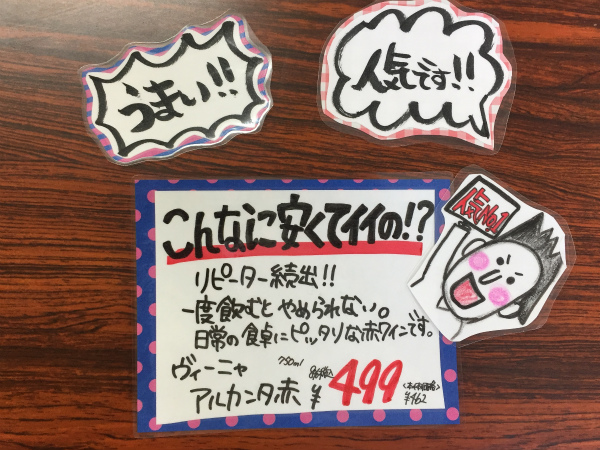 うまい!!
人気です!!
人気No.1
こんなに安くてイイの!?
リピーター続出!!
一度飲むと やめられない。
日常の食卓にピッタリな赤ワインです。
ヴィーニャ 750ml
アルカンタ赤 ¥499
¥462